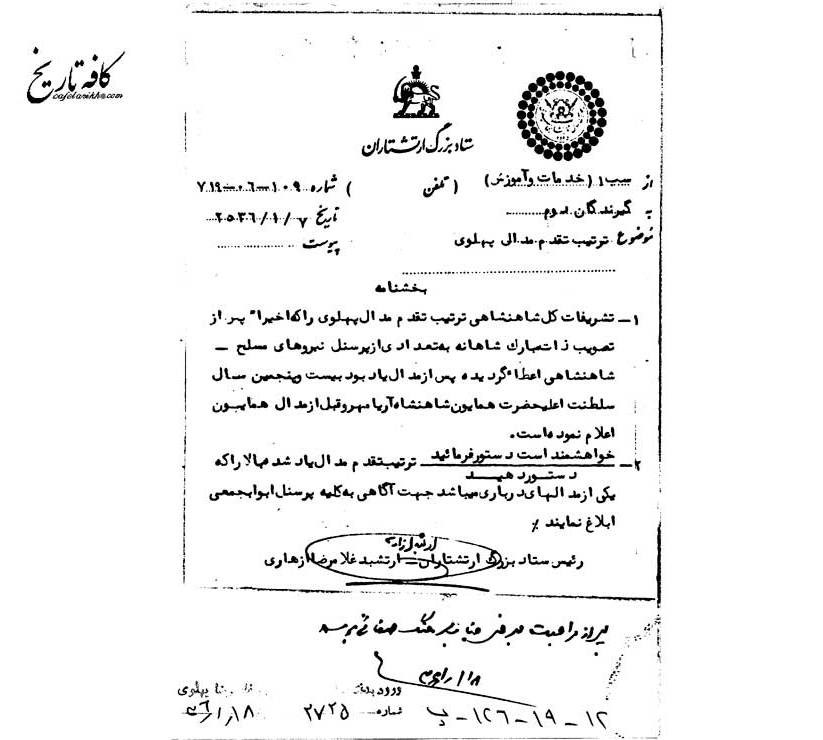 کافه تاریخ
cafetarikh.com
ستاد بزرگ ارتشتاران
از سب۱ (خدمات وآموزش) (تلفن ) شماره ۱۰۹-۰۶-۷۱۹
به گیرندگان سوم تاریخ ۲۵۳۶/۱/۷
موضوع ترتیب تقدم مدالی پهلوی پیوست
بخشنامه
۱- تشریفات کل شاهنشاهی ترتیب تقدم مدال پهلوی راکه اخیرا" پس از
تصویب ذات مبارک شاهانه به تعدادی از پرسنل نیروهای مسلح -
شاهنشاهی اعطاء گردیده پس از مدال یادبود بیست وپنجمین سال
سلطنت اعلیحضرت همایون شاهنشاه آریامهر وقبل از مدال همایون
اعلام نموده است.
۲- خواهشمند است دستورفرمائید ترتیب تقدم مدال یاد شده بالا راکه
دستور دهید
یکی از مدالهای درباری میباشد جهت آگاهی به کلیه پرسنل ابوابجمعی
ابلاغ نمایند ٪
رئیس ستاد بزرگ ارتشتاران - ارتشبد غلامرضا ازهاری
ورود بدفتر پهلوی
شماره ۲۷۲۵ ۳۶/۱/۱۸
۱۲-۱۹-۱۲۶-پ